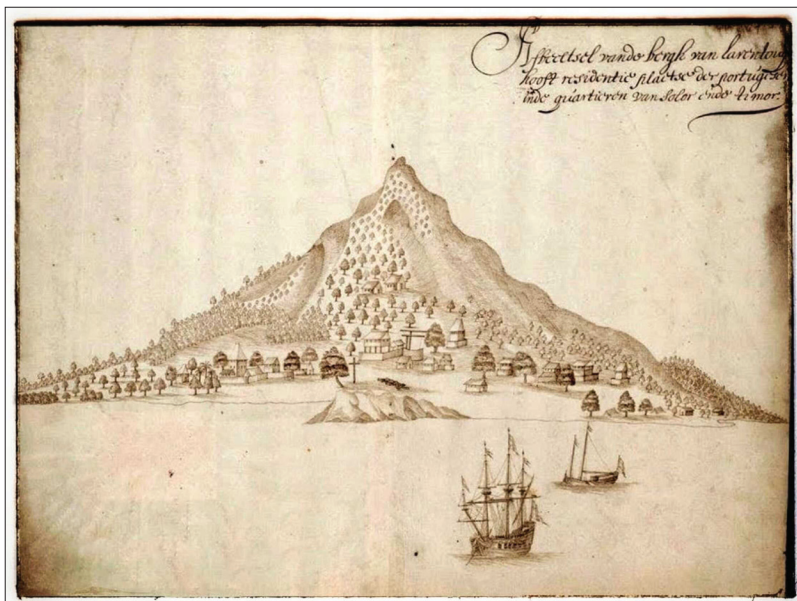 Afbeeltsel vande bergh van larentouque
hooft residentie plaetse der portugesen
inde quartieren van Solor ende timor.